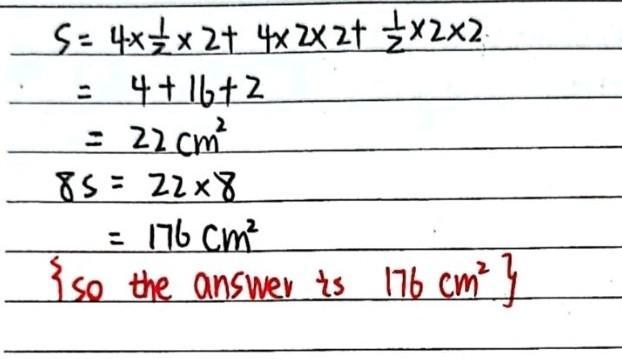 S = 4×½×2+ 4×2×2+ ½×2×2
= 4+16+2
= 22 cm²
8S = 22×8
= 176 cm²
{so the answer is 176 cm²}